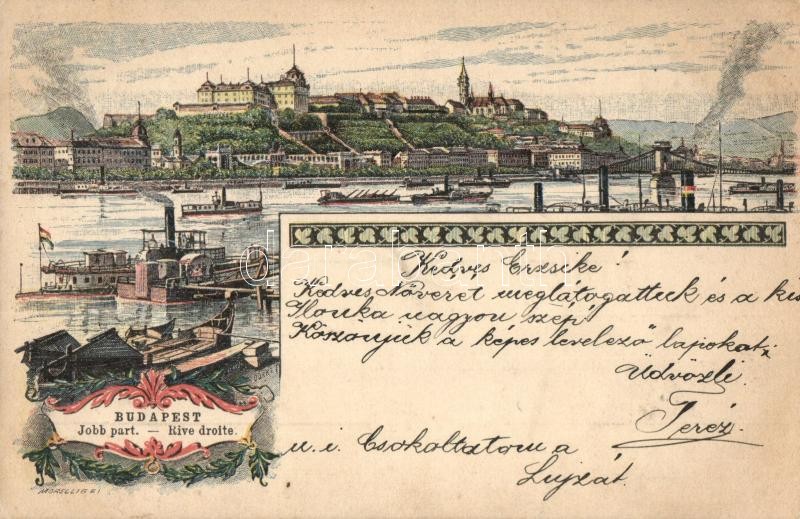 Kedves Erzsike!
Kedves Növeret meglátogattuk és a kis
Ilonka nagyon szép!
Köszönjük a képes levelező lapokat;
Üdvözli
Teréz.
u. i. Csokoltatom a
Lujzát.
BUDAPEST
Jobb part. — Rive droite.
MORELLI G EI